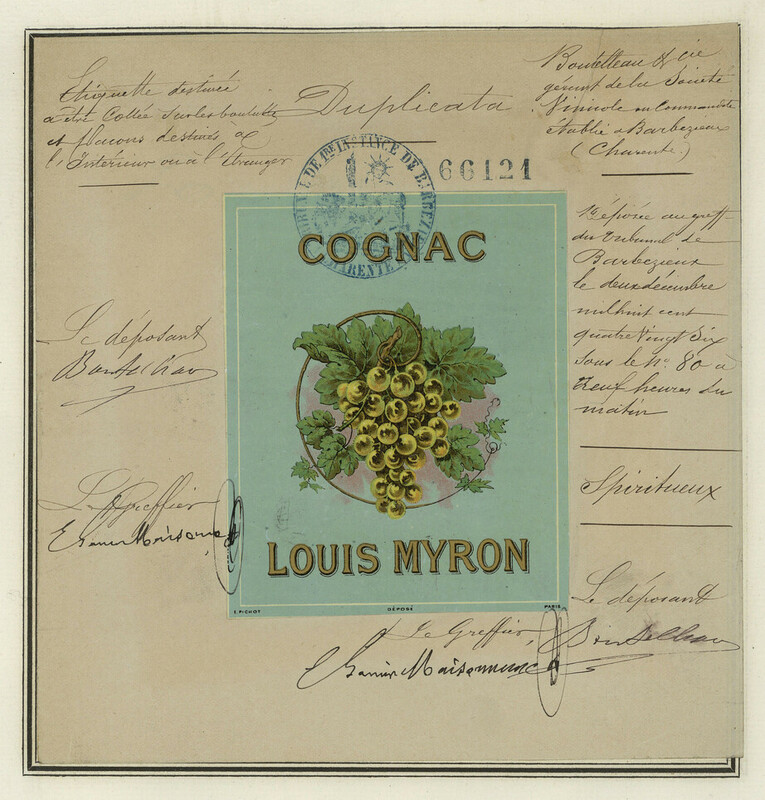 Etiquette destinée
à être Collée sur les bouteilles
et flacons destinés à
l'Intérieur ou à l'Etranger
Duplicata
Boutelleau & Cie
gérant de la Société
Vinicole en Commandite
établie à Barbezieux
(Charente.)
66121
TRIBUNAL DE 1RE INSTANCE DE BARBEZIEUX
CHARENTE
COGNAC
LOUIS MYRON
E. PICHOT
DÉPOSÉ
PARIS
Déposée au greffe
du Tribunal de
Barbezieux
le deux décembre
mil huit cent
quatre Vingt Six
Sous le No. 80 à
neuf heures du
matin
Spiritueux
Le déposant
Boutelleau
Le déposant
Boutelleau
Le Greffier
Le Greffier,